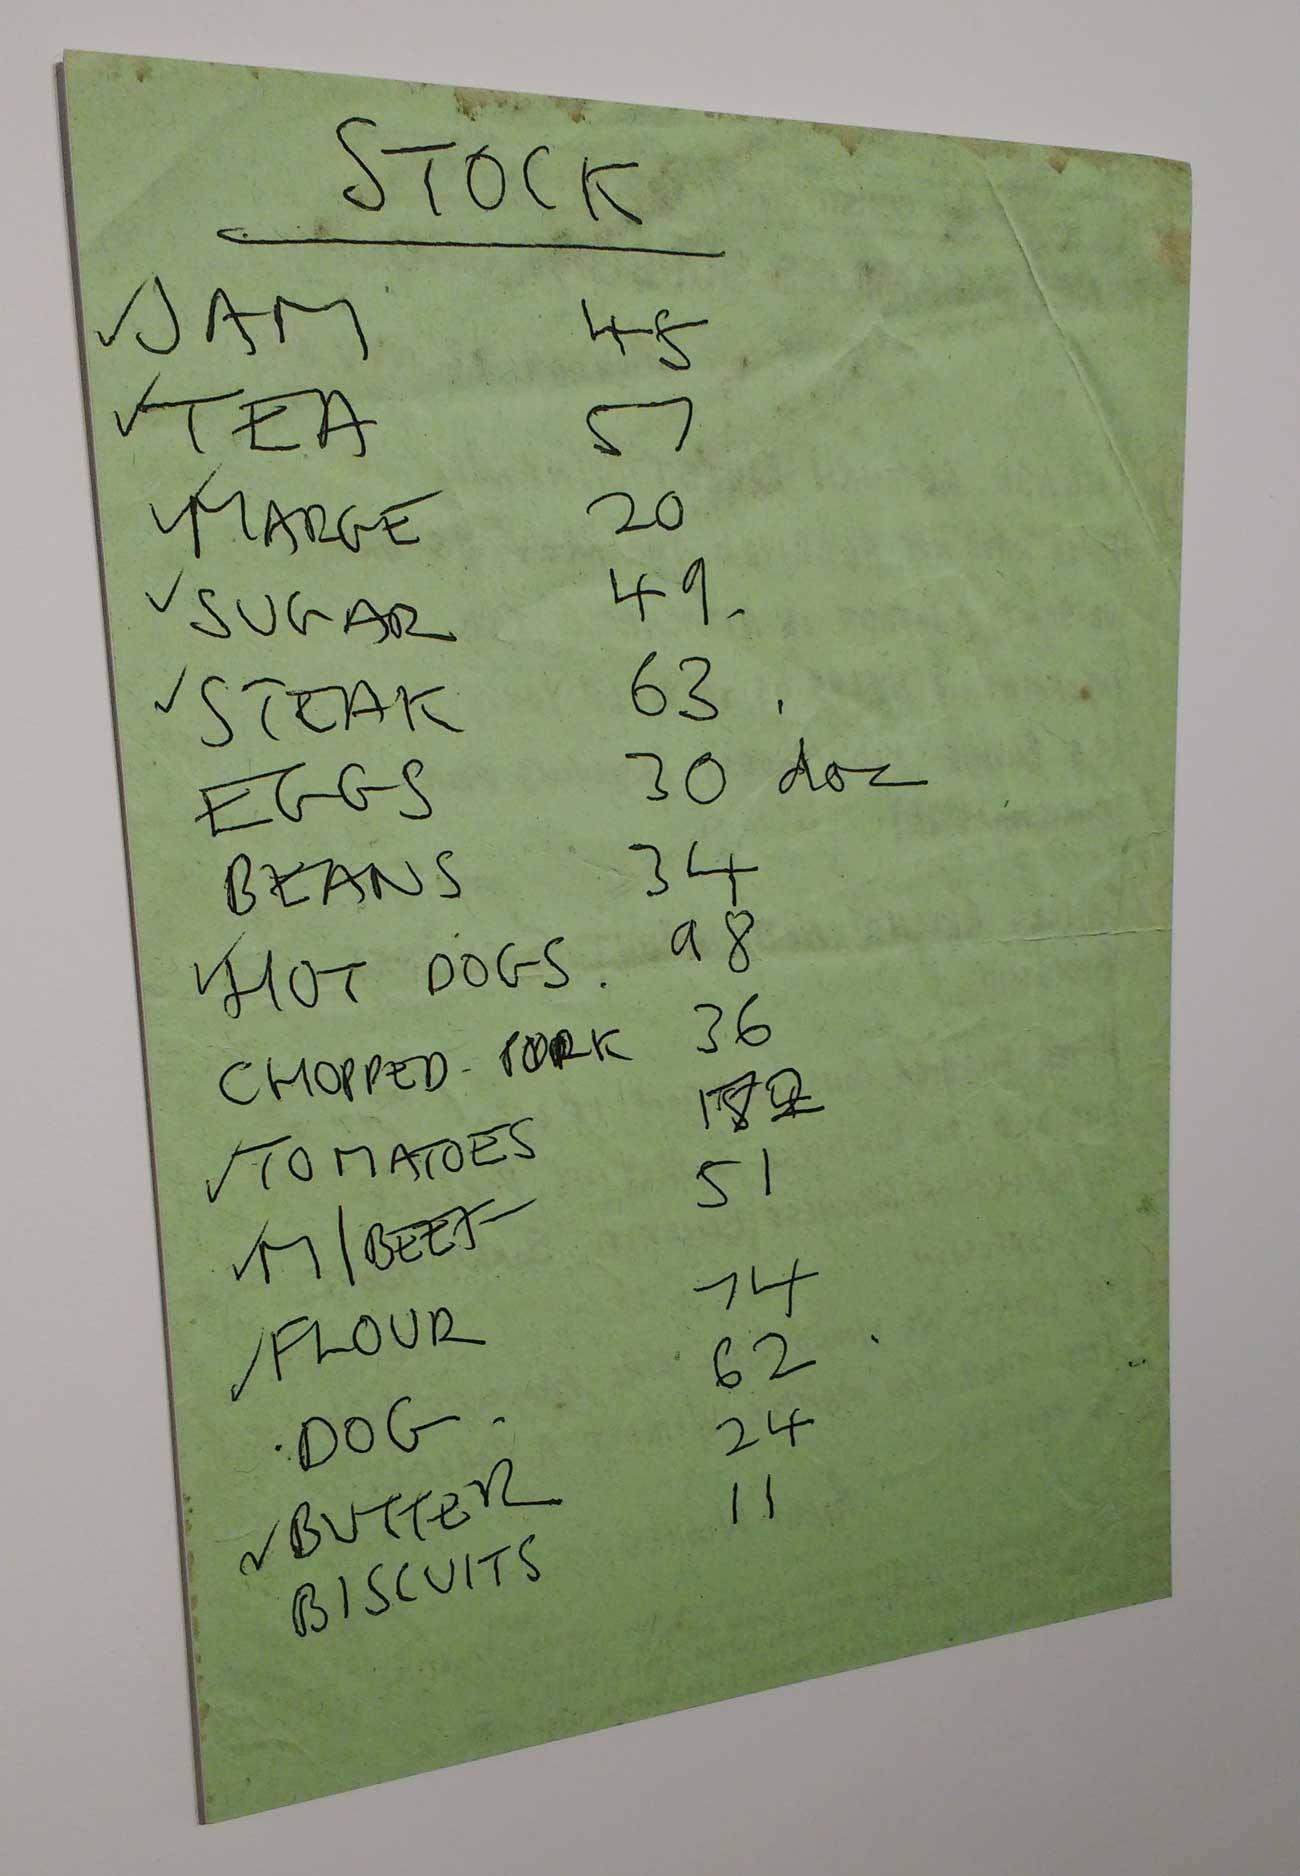 STOCK
✓ JAM 45
✓ TEA 57
✓ MARGE 20
✓ SUGAR 49.
✓ STEAK 63.
EGGS 30 doz
BEANS 34
✓ HOT DOGS. 98
CHOPPED - PORK 36
✓ TOMATOES
✓ M/BEEF 51
✓ FLOUR 74
. DOG . 62
✓ BUTTER 24
BISCUITS 11